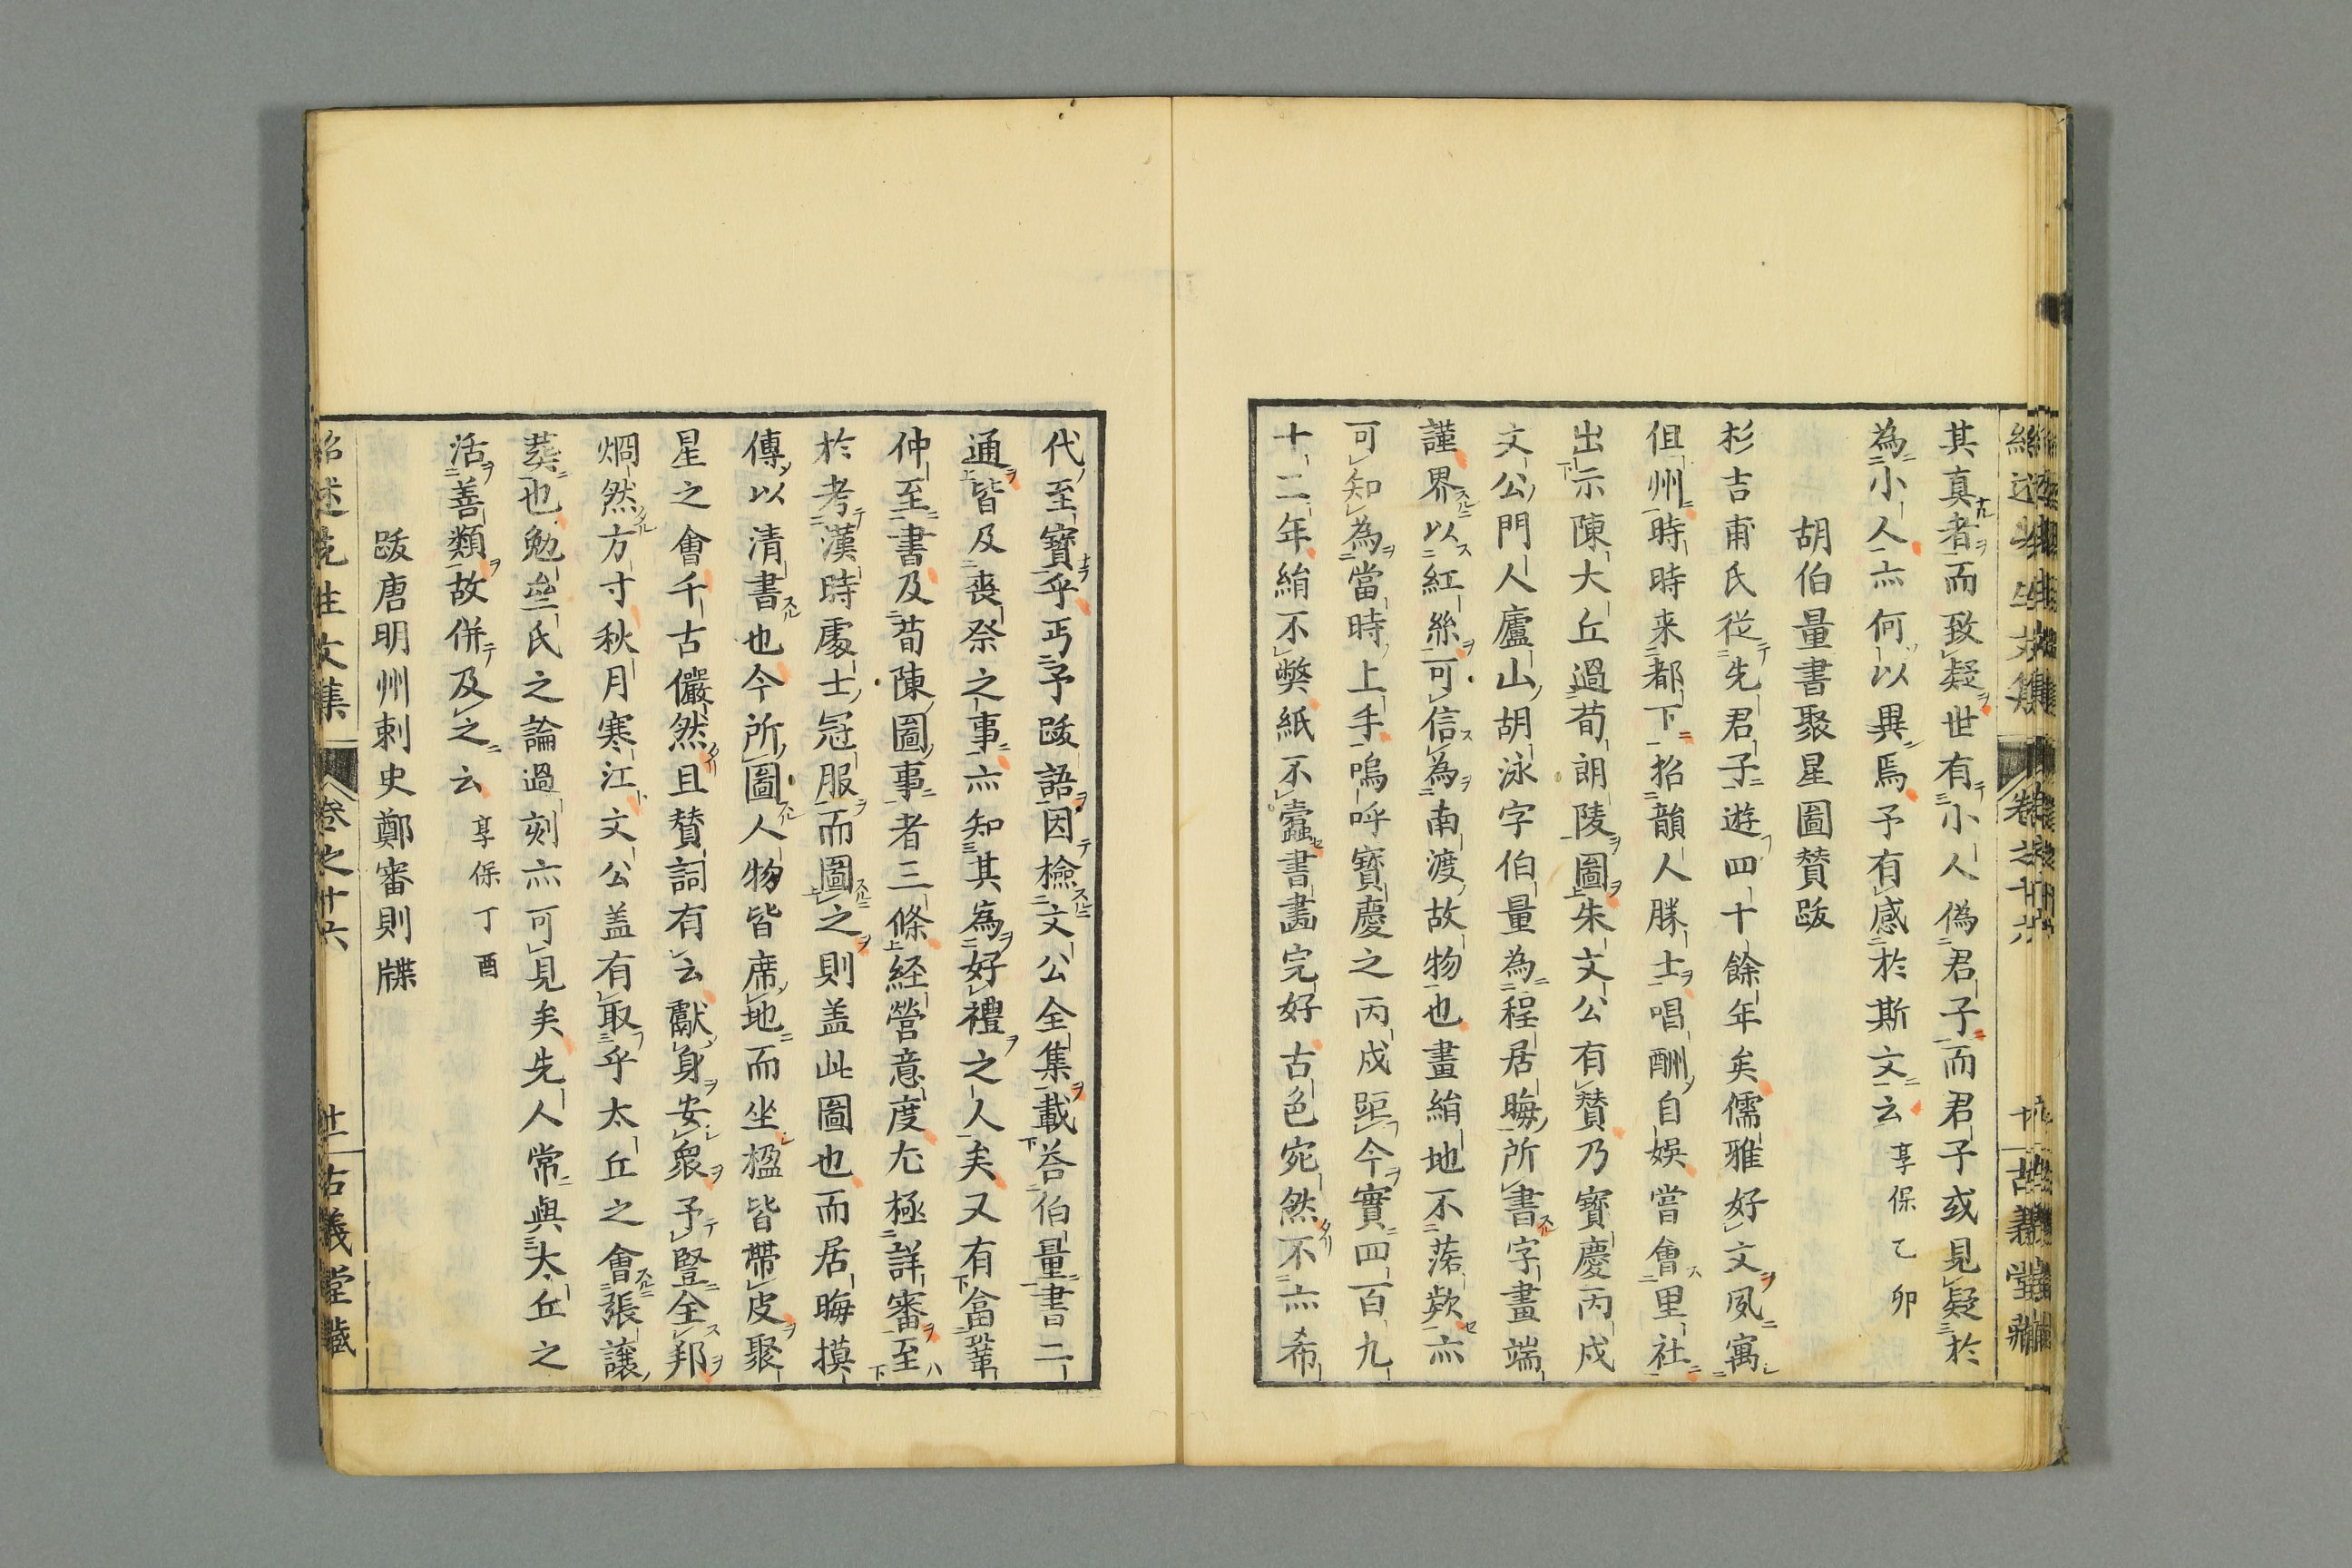 其真者而致疑世有小人偽君子而君子或見疑於
為小人亦何以異焉予有感於斯文云 享保乙卯
胡伯量書聚星圖贊跋
杉吉甫氏從先君子遊四十餘年矣儒雅好文夙寓
但州時時来都下招韻人勝士唱酬自娯嘗會里社
出示陳大丘過荀朗陵圖朱文公有贊乃寶慶丙戌
文公門人廬山胡泳字伯量為程居晦所書字畫端
謹界以紅絲可信為南渡故物也畫絹地不落欵亦
可知為當時上手嗚呼寶慶之丙戌距今實四百九
十二年絹不弊紙不蠹書畫完好古色宛然不亦希
代至寶乎丐予跋語因檢文公全集載荅伯量書二
通皆及喪祭之事亦知其為好禮之人矣又有畣鞏
仲至書及荀陳圖事者三條経營意度尤極詳審至
於考漢時處士冠服而圖之則盖此圖也而居晦摸
傳以清書也今所圖人物皆席地而坐楹皆帶皮聚
星之會千古儼然且賛詞有云獻身安衆予豎全邦
烱然方寸秋月寒江文公盖有取乎太丘之會張讓
葬也勉齋氏之論過刻亦可見矣先人常與太丘之
活善類故併及之云 享保丁酉
跋唐明州刺史鄭審則牒
紹述先生文集 卷之廿六 十一 古義堂藏